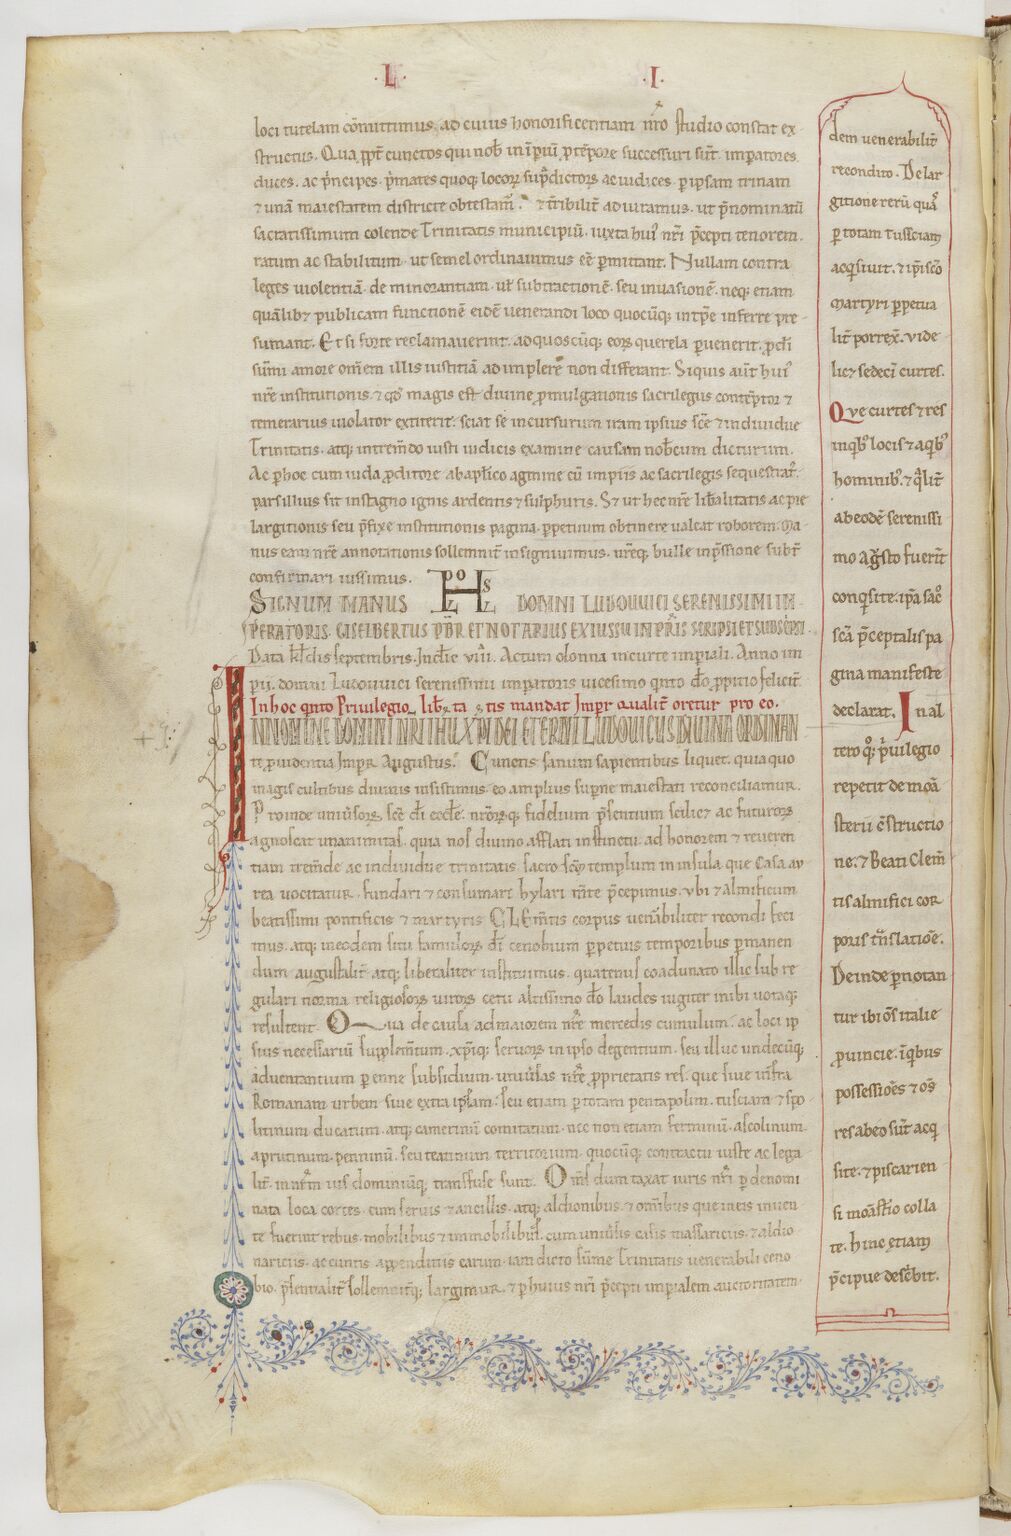 ·L· ·I·
loci tutelam cōmittimus. ad cuius honorificentiam nr̄o studio constat ex
structus. Qua ꝓpt̄ cunctos qui nob̄ in īꝑiū ꝓtēpore successuri sūt. imꝑatores.
duces. ac p̄ncipes. p̄mates quoq; locoꝝ sup̄dictoꝝ ac iudices. ꝑ ipsam trinam
⁊ unā maiestatem districte obtestam̄. ⁊ t̄ribilit̄ adiuramus. ut p̄nominatū
sacratissimum colende Trinitatis municipiū. iuxta hui' nr̄i p̄cepti tenorem.
ratum ac stabilitum. ut semel ordinauimus eē ꝑmittant. Nullam contra
leges uiolentiā. de minorantiam. ut̄ subtractionē. seu inuasionē. neq; etiam
quālib; publicam functionē eidē uenerandi loco quocūq; intp̄e inferre pre
sumant. Et si forte reclamauerint. ad quoscūq; eoꝝ querela ꝑuenerit. ꝓ dī
sūmi amore om̄em illis iustitiā adimplere non differant. Siquis aūt hui'
nr̄e institutionis. ⁊ qd̄ magis est diuine ꝓmulgationis sacrilegus contēptor ⁊
temerarius uiolator extiterit. sciat se incursurum iram ipsius sc̄e ⁊ indiuidue
Trinitatis. atq; in trem̄do iusti iudicis examine causam nob̄cum dicturum.
Ac ꝑ hoc cum iuda ꝓditore ab ap̄lico agmine cū impiis ac sacrilegis sequestrat'.
parsillius sit in stagno ignis ardentis ⁊ sulphuris. Et ut hec nr̄e lib̄alitatis ac pie
largitionis seu p̄fixe institutionis pagina. ꝑpetuum obtinere ualeat roborem. Ma
nus eam nr̄e annotationis sollemnit̄ insigniuimus. nr̄eq; bulle inp̄ssione subt̄
confirmari iussimus.
SIGNUM MANUS DOMNI LUDOUUICI SERENISSIMI IM
PERATORIS. GISELBERTUS PB̄R ET NOTARIUS EX IUSSU INPR̄IS SCRIPSI ET SUBSC̄PSI.
Data kl̄dis septembris. Indic̄ē VIIII. Actum olonna in curte imꝑiali. Anno im
pii. domni Ludouuici serenissimi imꝑatoris uicesimo qnto dō ꝓpitio felicit̄.
In hoc qnto Priuilegio lib̄tatis mandat Impr̄ qualit̄ oretur pro eo.
IN NOMINE DOMINI NRI IHU XPI DEI ETERNI LUDOUICUS DIUINA ORDINAN
te ꝓuidentia Impr̄ Augustus. Cunctis sanum sapientibus liquet. quia quo
magis cultibus diuinis insistimus. eo amplius supne maiestati reconciliamur.
Proinde uniūsoꝝ. sc̄e dī eccle. nr̄oꝝq; fidelium p̄sentium scilic; ac futuroꝝ
agnoscat unanimitas. quia nos diuino afflati instinctu. ad honorem ⁊ reueren
tiam trem̄de ac indiuidue trinitatis. sacro scm̄ templum in insula. que Casa au
rea uocitatur. fundari ⁊ consumari hylari m̄te p̄cepimus. ubi ⁊ almificum
beatissimi pontificis ⁊ martyris CLEm̄tis corpus uenabiliter recondi feci
mus. atq; in eodem situ famuloꝝ dī cenobium ꝑpetuis temporibus ꝑmanen
dum augustalit̄ atq; liberaliter instituimus. quatenus coadunato illic sub re
gulari norma religiosoꝝ uiroꝝ cetu altissimo dō laudes iugiter inibi uotaq;
resultent. Qua de causa ad maiorem nr̄e mercedis cumulum. ac loci ip
sius necessariū supplem̄tum. xp̄iq; seruoꝝ in ipso degentium. seu illuc undecūq;
aduentantium ꝑenne subsidium. uniūsas nr̄e ꝓprietatis res. que siue infra
Romanam urbem siue extra ipsam. seu etiam ꝑ totam pentapolim. tusciam ⁊ spo
litinum ducatum. atq; camerinū comitatum. nec non etiam firminū. asculinum.
aprutinum. penninū. seu teatinum territorium. quocūq; contractu iuste ac lega
lit̄. in nr̄m ius dominiūq; transfuse sunt. Om̄s dum taxat iuris nr̄i ꝑ denomi
nata loca cortes. cum seruis ⁊ ancillis. atq; aldionibus ⁊ om̄ibus que in eis inuen
te fuerint rebus. mobilibus ⁊ immobilibus. cum uniūsis casis massaricus. ⁊ aldio
nariciis. ac cuntis appenditiis earum. iam dicto sūme Trinitatis uenerabili ceno
bio. p̄sentialit̄ sollemnitq; largimur. ⁊ ꝑ huius nr̄i p̄cepti imꝑialem auctoritatem.
dem uenerabilit̄
recondito. De lar
gitione rerū qua'
ꝑ totam Tussciam
acqsiuit. ⁊ ip̄i sc̄o
martyri ꝑpetua
lit̄ porrex̄. vide
lic; sedecī curtes.
Que curtes ⁊ res
inqb' locis ⁊ a qb'
hominib'. ⁊ qlit̄
ab eodē serenissi
mo Ag̃sto fuerīt
conqsite. ip̄a sac'
scā p̄ceptalis pa
gina manifeste
declarat. In al
tero qo; p̄uilegio
repetit de moā
sterii c̄structio
ne. ⁊ Beati Clem̄
tis almifici cor
poris tn̄slatiōe.
Deinde ꝑnotan
tur ibi ōs italie
ꝓuincie. īqbus
possessiōes ⁊ oīs
res ab eo sūt acq
site. ⁊ piscarien
si moāst̄io colla
te. hinc etiam
p̄cipue desc̄bit.